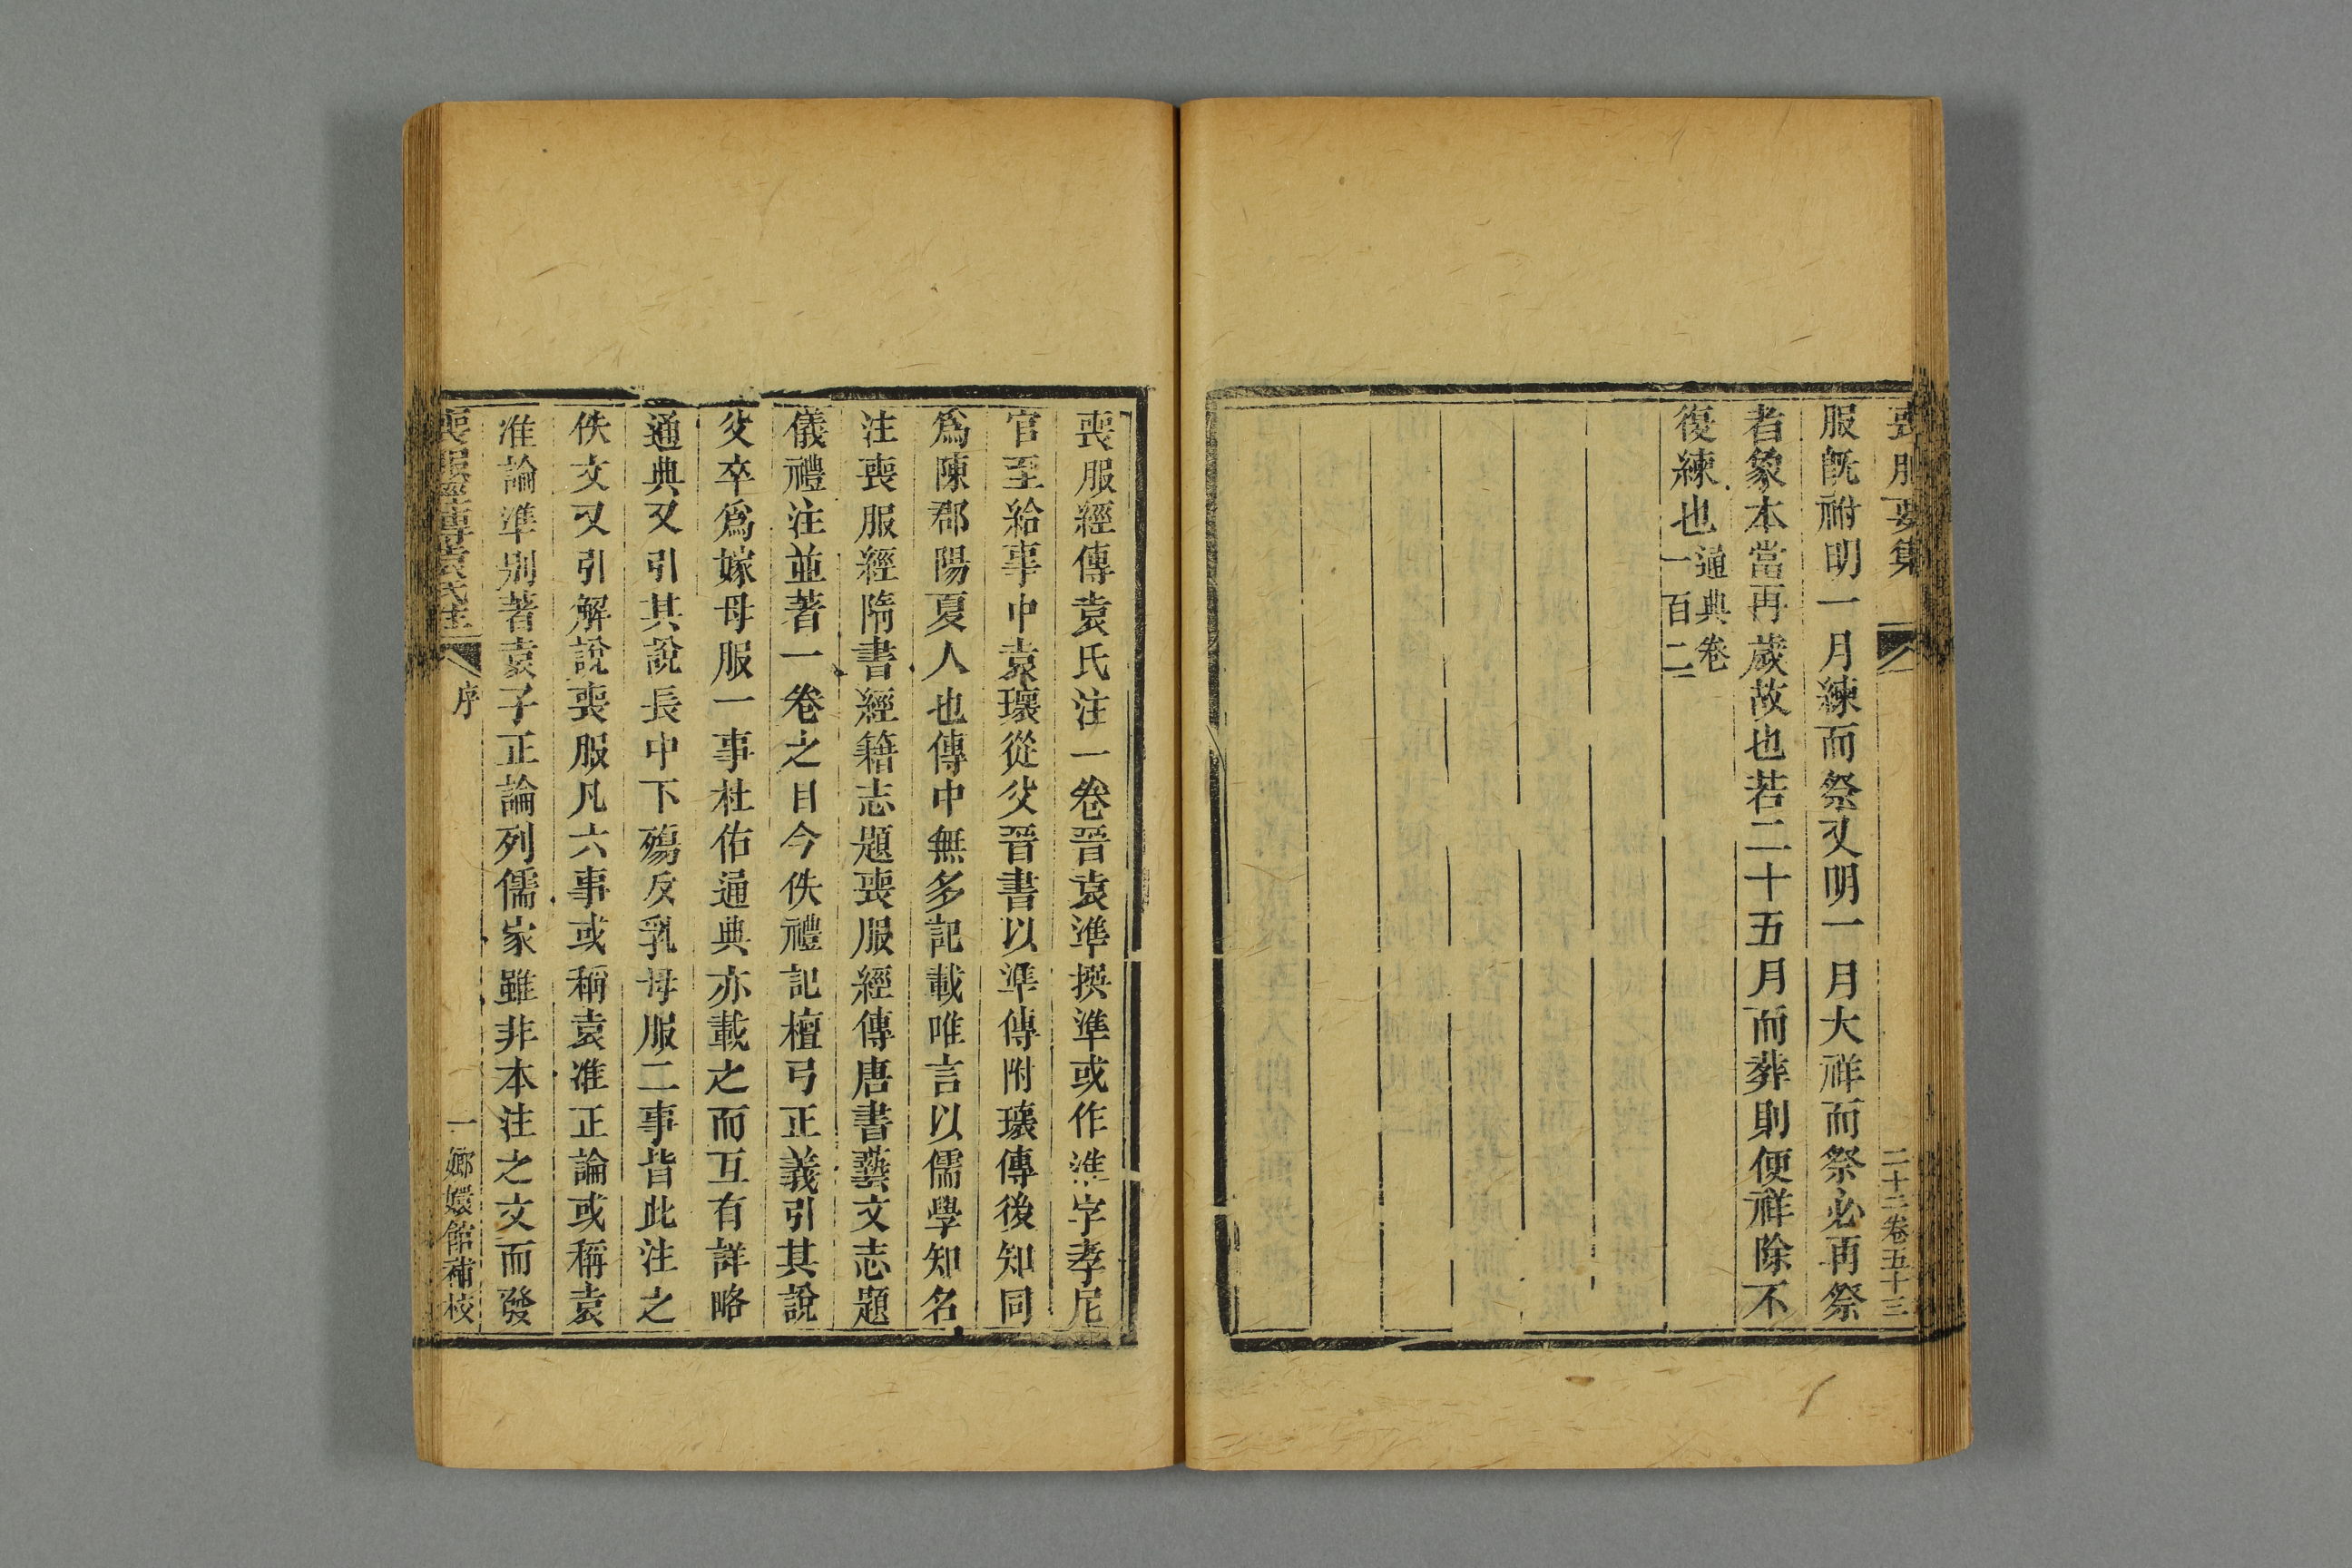 喪服要集
二十二卷五十三
服既祔明一月練而祭又明一月大祥而祭必再祭
者象本當再歲故也若二十五月而葬則便祥除不
復練也通典卷
一百二
喪服經傳袁氏注一卷晉袁準撰準或作准字孝尼
官至給事中袁瓌從父晉書以準傳附瓌傳後知同
爲陳郡陽夏人也傳中無多記載唯言以儒學知名
注喪服經隋書經籍志題喪服經傳唐書藝文志題
儀禮注並著一卷之目今佚禮記檀弓正義引其說
父卒爲嫁母服一事杜佑通典亦載之而互有詳略
通典又引其說長中下殤反乳母服二事皆此注之
佚文又引解說喪服凡六事或稱袁准正論或稱袁
准論準別著袁子正論列儒家雖非本注之文而發
喪服經傳袁氏注
序
一
嫏嬛館補校